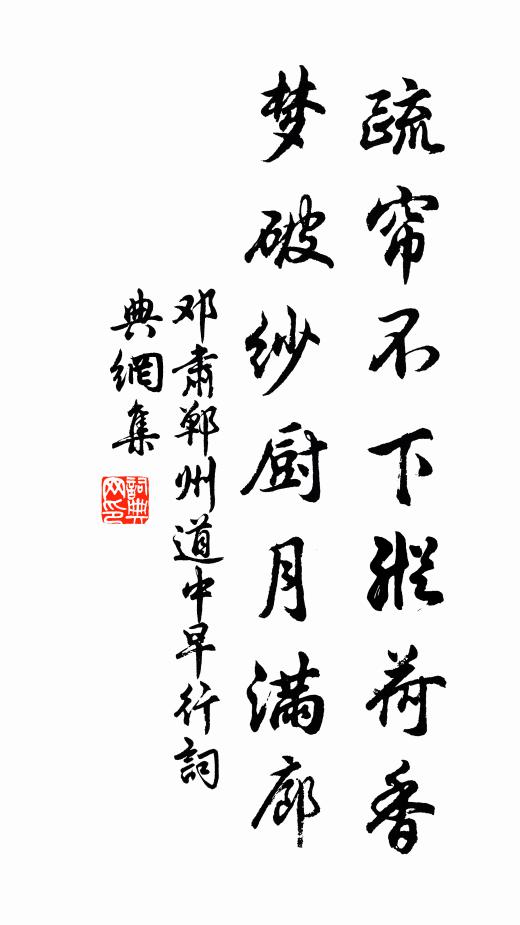 疏帘不下縱荷香
梦破纱厨月满廊
邓肃郸州道中早行詞
典網集
詞典网印